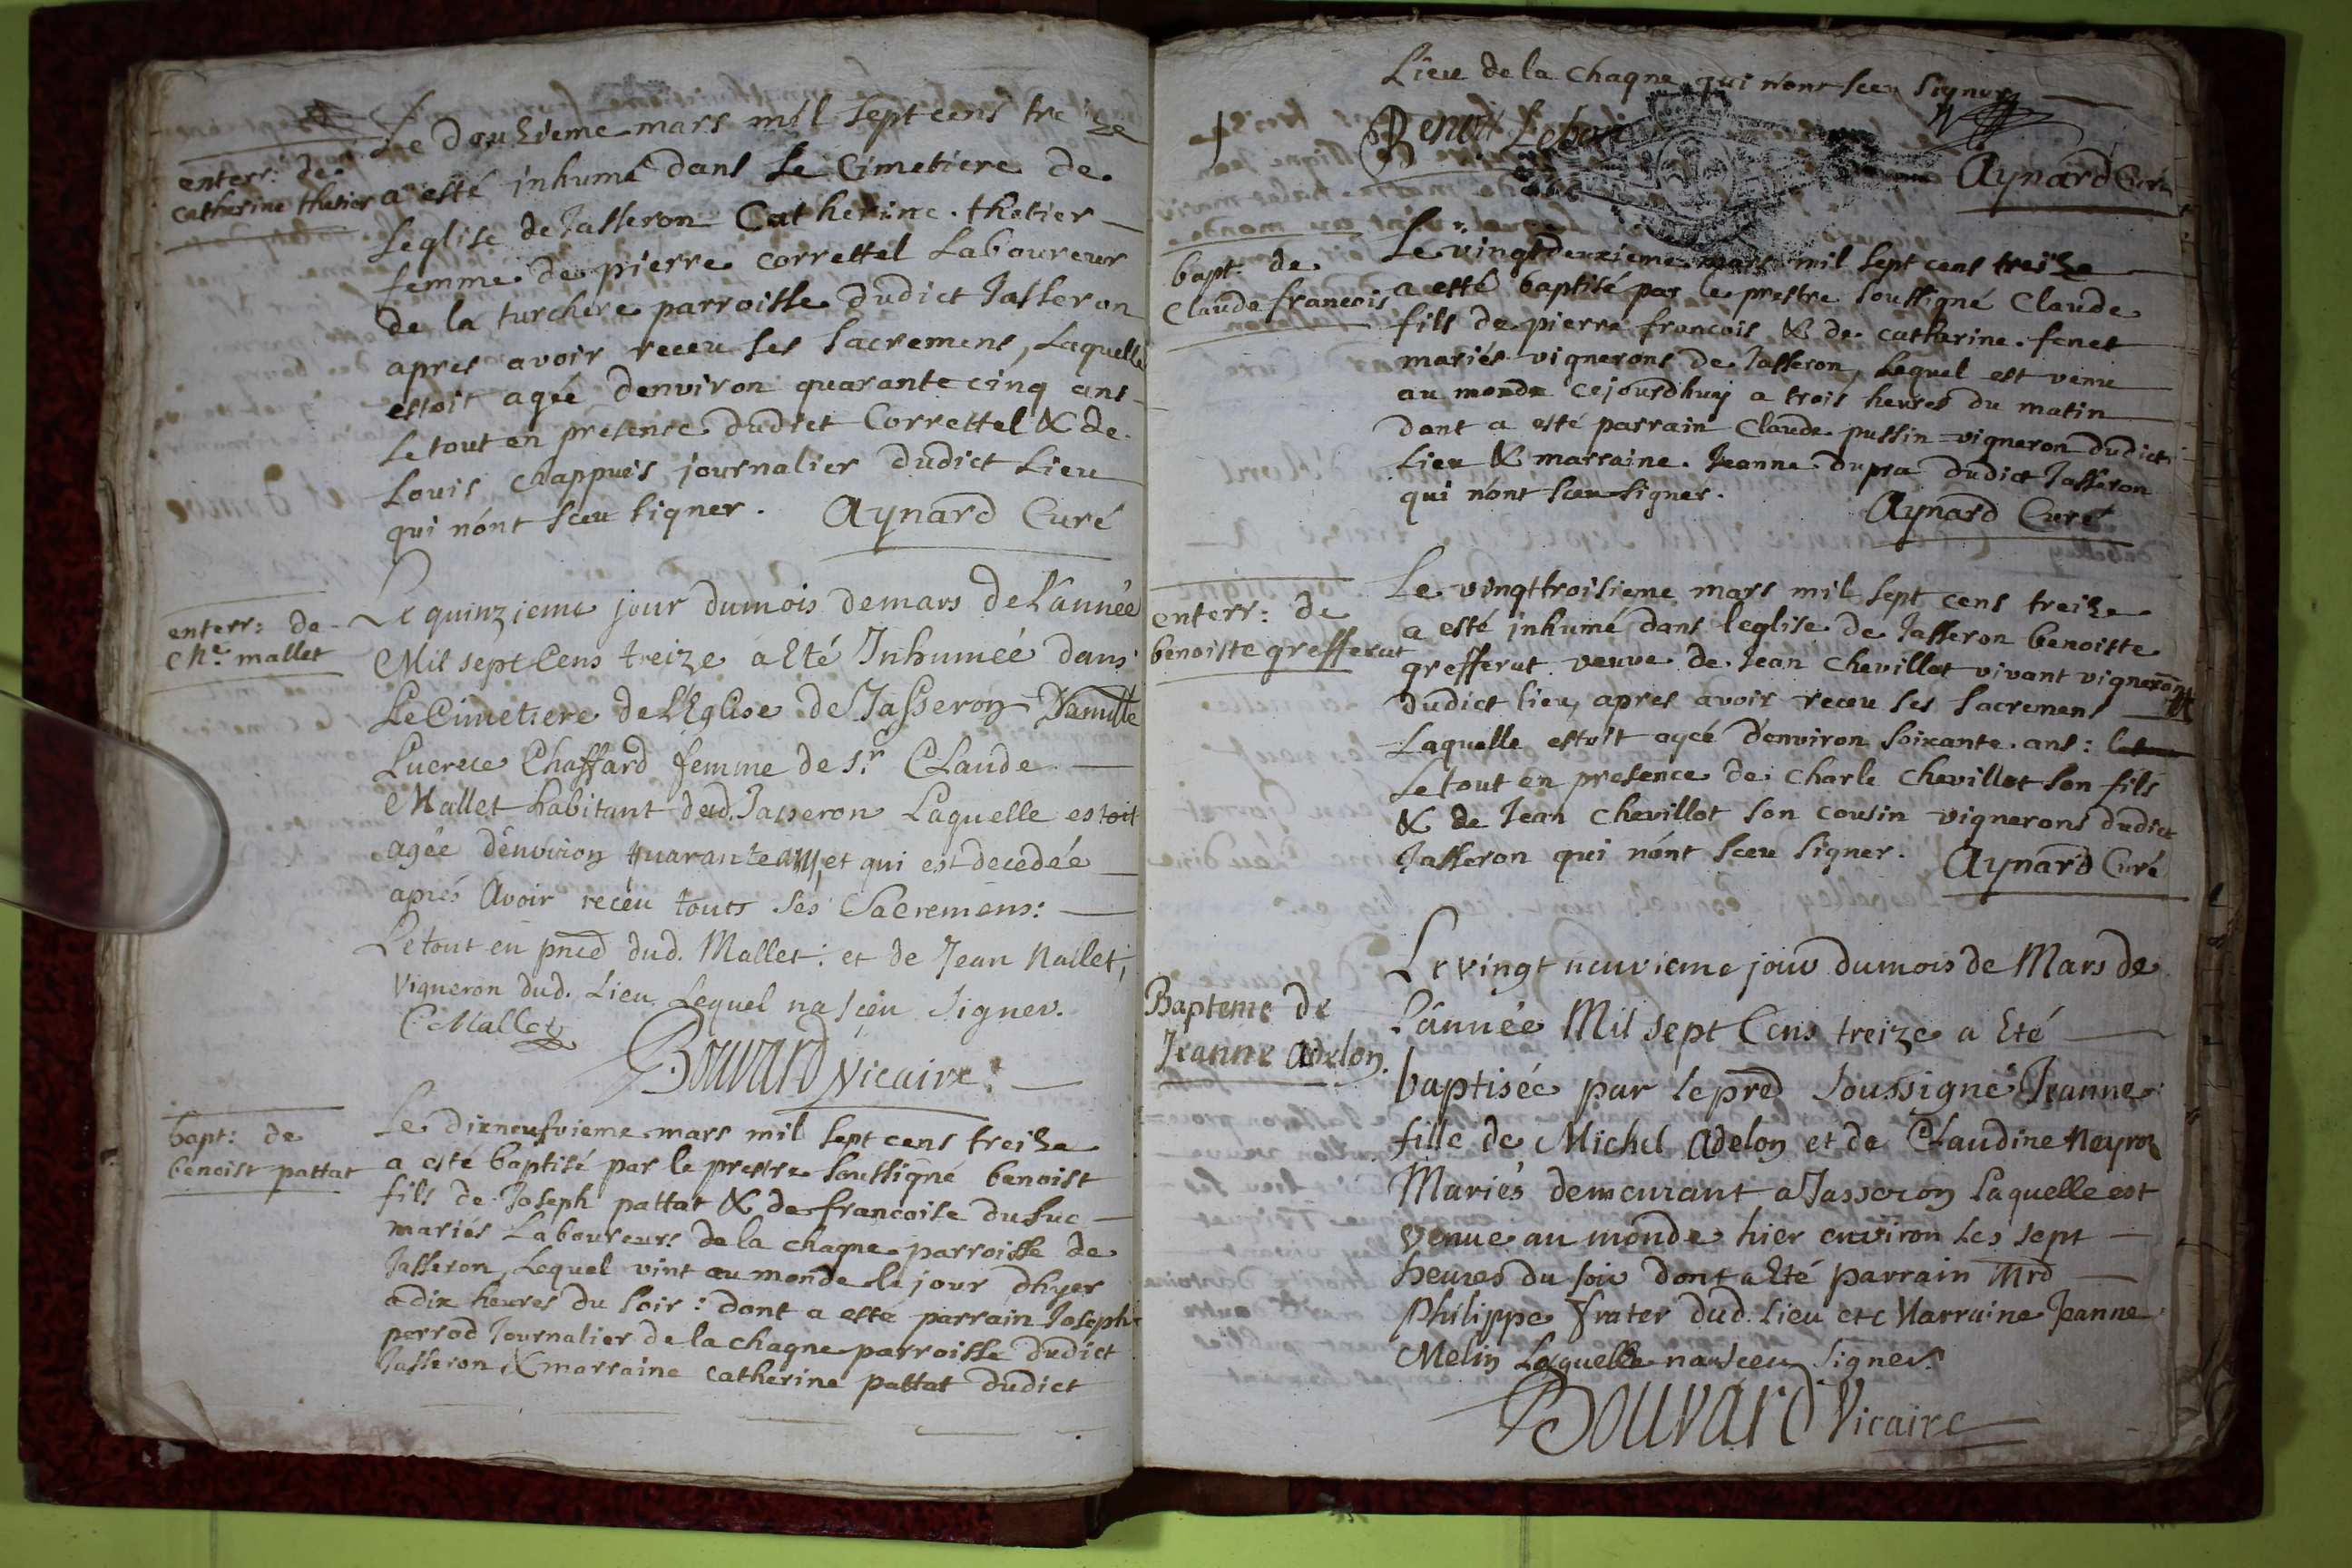 enterr: de
catherine thetier
Le Douzieme mars mil sept cens treize
a esté inhumé dans le Cimetiere de
Leglise de Jasseron Catherine thetier
femme de pierre correttel Laboureur
de la turchere parroisse dudict Jasseron
apres avoir receu ses sacremens, Laquelle
estoit agée denviron quarante cinq ans
Le tout en presence dudict Correttel & de
Louis chappuis journalier dudict Lieu
qui n'ont sceu signer. Aynard Curé
enterr: de
Che. mallet
Le quinzieme jour dumois demars de l'année
Mil sept Cens treize a Eté Inhumeé dans
Le Cimetiere de L'Eglise de Jasseron
Lucrece Chaffard femme de s.r Claude
Mallet habitant dud. Jasseron Laquelle estoit
agée d'environ quarante ans, et qui est decedée
aprés Avoir receu touts ses Sacremens:
Le tout en pnce dud. Mallet: et de Jean Nallet,
Vigneron dud. Lieu Lequel na sceu signer.
C. Mallet
Bouvard Vicaire.
bapt: de
benoist pattat
Le dixneufvieme mars mil sept cens treize
a esté baptisé par le prestre soussigné benoist
fils de Joseph pattat & de francoise dusuc
mariés Laboureurs de la chagne parroisse de
Jasseron, Lequel vint au monde le jour dhyer
a dix heures du soir: dont a esté parrain Joseph
perrod Journalier de la chagne parroisse dudict
Jasseron & marraine catherine pattat dudict
Lieu de la chagne qui n'ont sceu signer
Benoit
Aynard Curé
bapt: de
Claude francois
Le vingtdeuxieme mars mil sept cens treize
a esté baptisé par le prestre soussigné Claude
fils de pierre francois & de catherine fenet
mariés vignerons de Jasseron, Lequel est venu
au monde cejourdhuy a trois heures du matin
dont a esté parrain Claude pussin vigneron dudict
Lieu & marraine Jeanne dupra dudict Jasseron
qui n'ont sceu signer. Aynard Curé
enterr: de
benoiste grefferat
Le vingttroisieme mars mil sept cens treize
a esté inhumé dans leglise de Jasseron benoiste
grefferat veuve de Jean Chevillot vivant vigneron
dudict lieu, apres avoir receu ses sacremens
Laquelle estoit agée d'environ soixante ans:
Le tout en presence de Charle Chevillot son fils
& de Jean Chevillot son cousin vignerons dudict
Jasseron qui n'ont sceu signer. Aynard Curé
Bapteme de
Jeanne Adelon.
Le vingt neuvieme jour dumois de Mars de
l'année Mil sept Cens treize a Eté
baptisée par le pred soussigné Jeanne
fille de Michel Adelon et de Claudine Neyron
Mariés demeurant a Jasseron Laquelle est
venue au monde hier environ les sept
heures du soir dont a Eté parrain Mrd
Philippe frater dud. lieu et Marraine Jeanne
Melin Laquelle na sceu signer.
Bouvard Vicaire